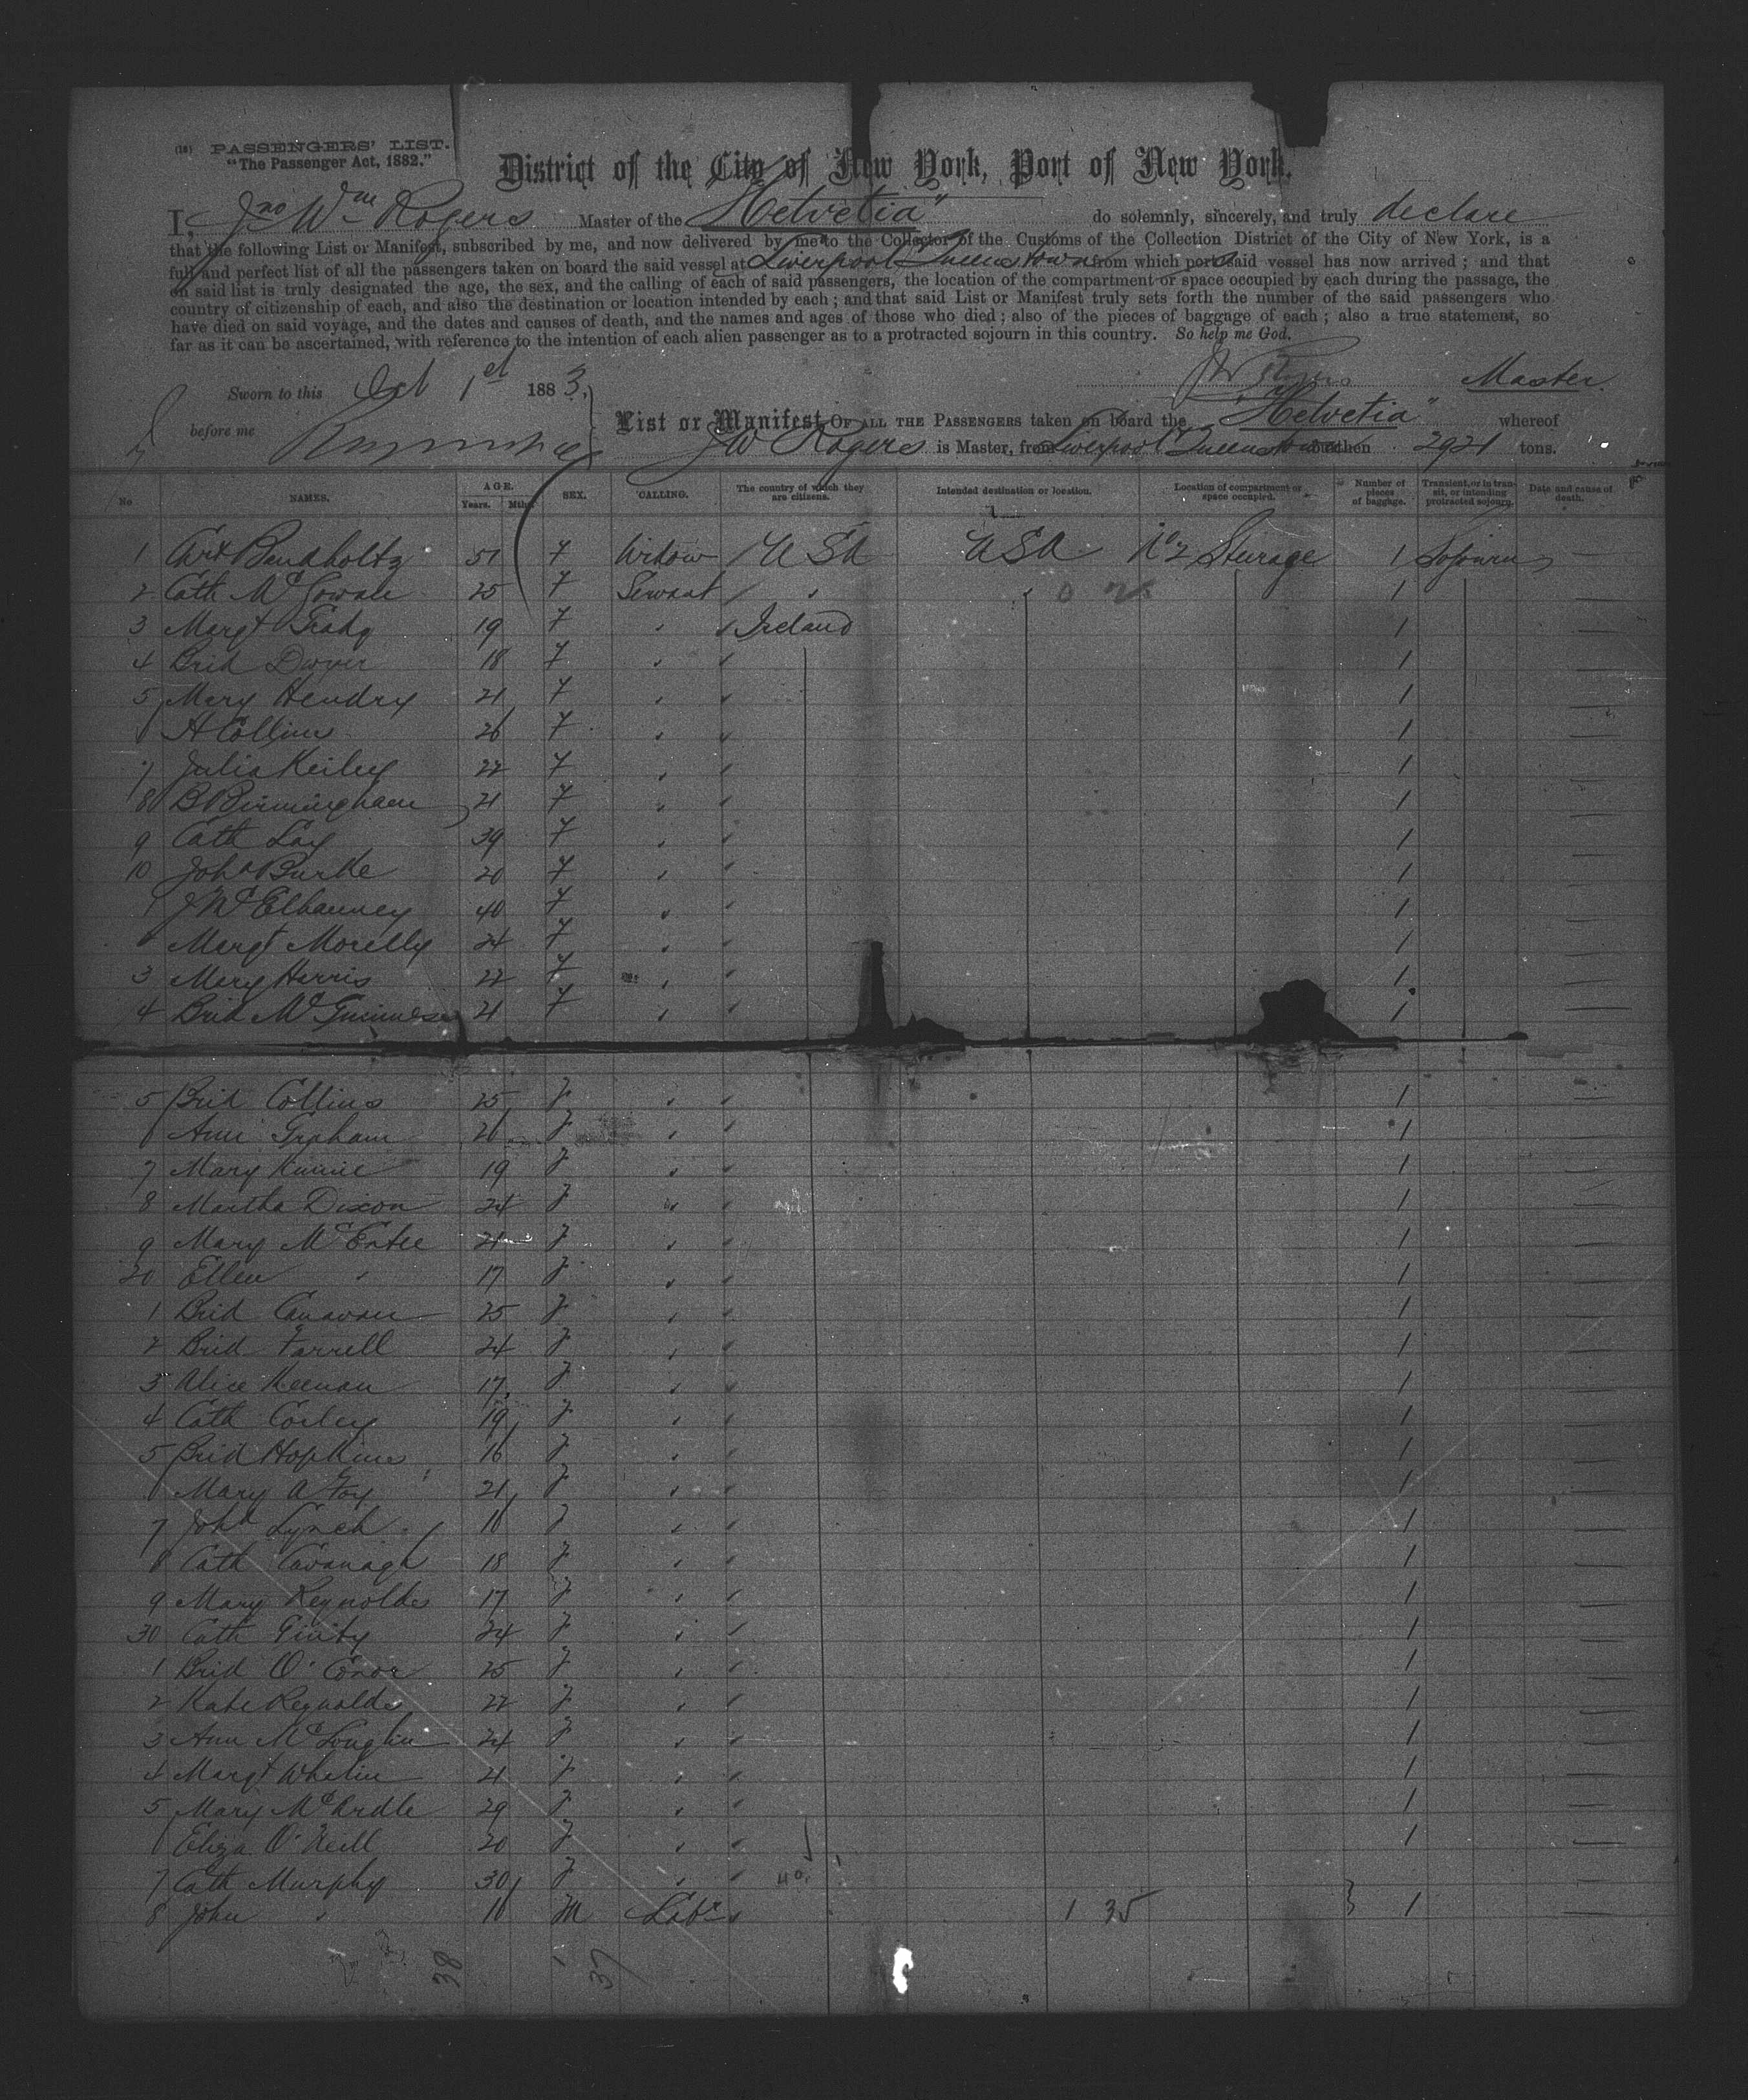 (18) PASSENGERS' LIST.
"The Passenger Act, 1882."
District of the City of New York, Port of New York.
I, Jno Wm Rogers Master of the "Helvetia" do solemnly, sincerely, and truly declare
that the following List or Manifest, subscribed by me, and now delivered by me to the Collector of the Customs of the Collection District of the City of New York, is a
full and perfect list of all the passengers taken on board the said vessel at Liverpool Queenstown from which port said vessel has now arrived; and that
on said list is truly designated the age, the sex, and the calling of each of said passengers, the location of the compartment or space occupied by each during the passage, the
country of citizenship of each, and also the destination or location intended by each; and that said List or Manifest truly sets forth the number of the said passengers who
have died on said voyage, and the dates and causes of death, and the names and ages of those who died; also of the pieces of baggage of each; also a true statement, so
far as it can be ascertained, with reference to the intention of each alien passenger as to a protracted sojourn in this country. So help me God.
Sworn to this Oct 1st 1883, JW Rogers Master.
before me
List or Manifest OF ALL THE PASSENGERS taken on board the "Helvetia" whereof
JW Rogers is Master, from Liverpool Queenstown burthen 2921 tons.
No NAMES. AGE. Years. Mths. SEX. CALLING. The country of which they are citizens. Intended destination or location. Location of compartment or space occupied. Number of pieces of baggage. Transient, or in transit, or intending protracted sojourn. Date and cause of death.
1 Bendholtz 51 F Widow USA USA No 2 Sturage 1 Sojourn
2 Cath McGowan 25 F Servant " 1
3 Margt 19 F " Ireland 1
4 Brid Dwyer 18 F " " 1
5 Mary Hendry 21 F " " 1
6 H Collins 26 F " " 1
7 Julia Keiley 22 F " " 1
8 B Birmingham 21 F " " 1
9 Cath Lay 39 F " " 1
10 Joha Burke 20 F " " 1
1 J McElhanney 40 F " " 1
Margt Morelly 24 F " " 1
3 Mary Harris 22 F " " 1
4 Brid McGuinness 21 F " " 1
5 Brid Collins 25 F " " 1
6 Ann Graham 26 F " " 1
7 Mary Kinnie 19 F " " 1
8 Martha Dixon 24 F " " 1
9 Mary McEntee 21 F " " 1
20 Ellen " 17 F " " 1
1 Brid Canavan 25 F " " 1
2 Brid Farrell 24 F " " 1
3 Alice Keenan 17 F " " 1
4 Cath Corley 19 F " " 1
5 Brid Hopkins 16 F " " 1
6 Mary A Foy 21 F " " 1
7 Joha Lynch 16 F " " 1
8 Cath Cavanagh 18 F " " 1
9 Mary Reynolds 17 F " " 1
30 Cath Ginity 24 F " " 1
1 Brid O'Conor 25 F " " 1
2 Kate Reynolds 22 F " " 1
3 Ann McLoughlin 24 F " " 1
4 Margt Whelin 21 F " " 1
5 Mary McArdle 29 F " " 1
6 Eliza O'Neill 20 F " " 1
7 Cath Murphy 30 F " "
8 John " 10 M Labr " 1 35 } 1
38 1 37